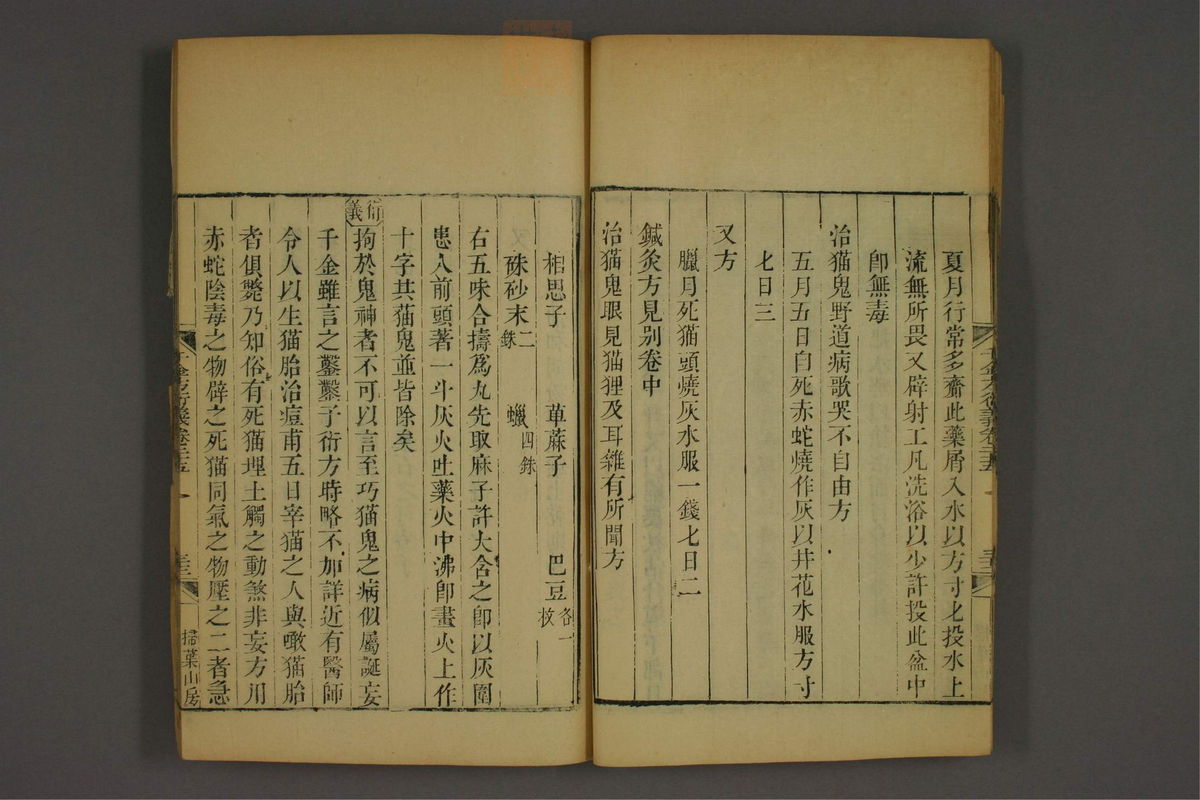 夏月行常多齎此藥屑入水以方寸匕投水上
流無所畏又辟射工凡洗浴以少許投此盆中
卽無毒
治猫鬼野道病歌哭不自由方
五月五日自死赤蛇燒作灰以井花水服方寸
七日三
又方
臘月死猫頭燒灰水服一錢七日二
鍼灸方見別卷中
治猫鬼眼見猫狸及耳雜有所聞方
千金方衍義卷二十五
三十三
相思子 萆蔴子 巴豆各一枚
硃砂末二銖 蠟四銖
右五味合擣爲丸先取麻子許大含之卽以灰圍
患人前頭著一斗灰火吐藥火中沸卽畫火上作
十字共猫鬼並皆除矣
衍義
拘於鬼神者不可以言至巧猫鬼之病似屬誕妄
千金雖言之鑿鑿予衍方時略不加詳近有醫師
令人以生猫胎治痘甫五日宰猫之人與噉猫胎
者俱斃乃知俗有死猫埋土觸之動煞非妄方用
赤蛇陰毒之物辟之死猫同氣之物壓之二者急
千金方衍義卷二十五
三十三
掃葉山房